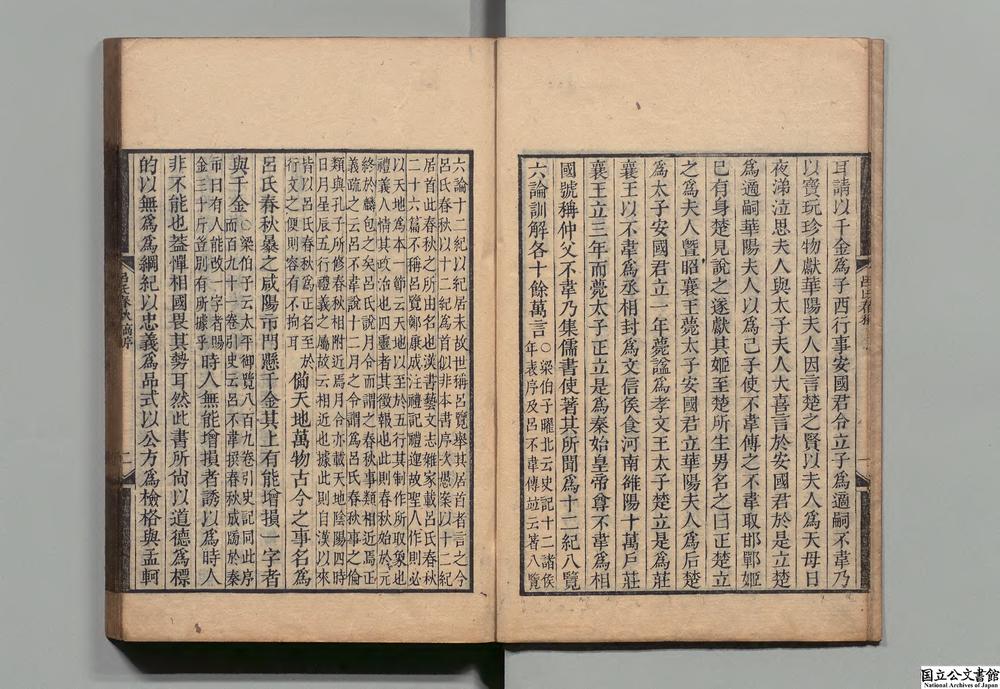 耳請以千金爲子西行事安國君令立子爲適嗣不韋乃
以寶玩珍物獻華陽夫人因言楚之賢以夫人爲天母日
夜涕泣思夫人與太子夫人大喜言於安國君於是立楚
爲適嗣華陽夫人以爲己子使不韋傅之不韋取邯鄲姬
已有身楚見說之遂獻其姬至楚所生男名之曰正楚立
之爲夫人曁昭襄王薨太子安國君立華陽夫人爲后楚
爲太子安國君立一年薨諡爲孝文王太子楚立是爲莊
襄王以不韋爲丞相封爲文信侯食河南雒陽十萬戶莊
襄王立三年而薨太子正立是爲秦始皇帝尊不韋爲相
國號稱仲父不韋乃集儒書使著其所聞爲十二紀八覽
六論訓解各十餘萬言
○梁伯子曜北云史記十二諸侯
年表序及呂不韋傳竝云著八覽
六論十二紀以紀居末故世稱呂覽舉其居首者言之今
呂氏春秋以十二紀爲首似非本書序次愚案以十二紀
居首此春秋之所由名也漢書藝文志雜家載呂氏春秋
二十六篇不稱呂覽鄭康成注禮記禮運故聖人作則必
以天地爲本一節云天地以至於五行其制作所取象也
禮義人情其政治也四靈者其徵報也此則春秋始於元
終於麟包之矣呂氏說月令而謂之春秋事類相近焉正
義疏之云呂不韋說十二月之令謂爲呂氏春秋事之倫
類與孔子所修春秋相附近焉月令亦載天地陰陽四時
日月星辰五行禮義之屬故云相近也據此則自漢以來
皆以呂氏春秋爲正名至於
行文之便則容有不拘耳
備天地萬物古今之事名爲
呂氏春秋暴之咸陽市門懸千金其上有能增損一字者
與千金
○梁伯子云太平御覽八百九卷引史記同此序
而百九十一卷引史云呂不韋撰春秋成牓於秦
市曰有人能改一字者賜
金三十斤豈別有所據乎
時人無能增損者誘以爲時人
非不能也葢憚相國畏其勢耳然此書所尙以道德爲標
的以無爲爲綱紀以忠義爲品式以公方爲檢格與孟軻
呂氏春秋
序
二
国立公文書館
National Archives of Japan